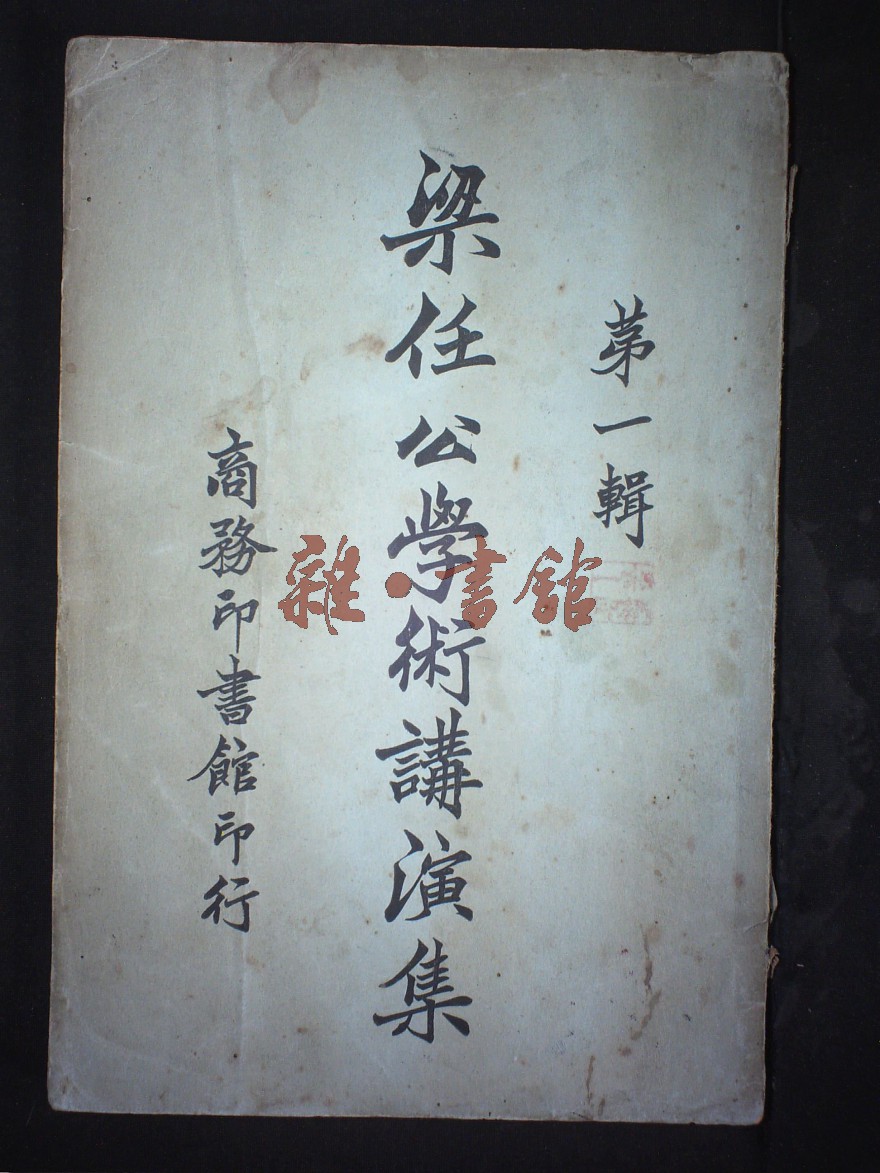 第一輯
梁任公學術講演集
商務印書館印行
雜·書館